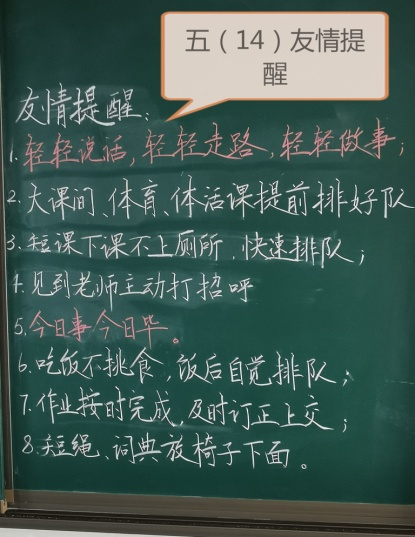 五（14）友情提
醒
友情提醒：
1.轻轻说话，轻轻走路，轻轻做事；
2.大课间、体育、体活课提前排好队
3.短课下课不上厕所，快速排队；
4.见到老师主动打招呼
5.今日事今日毕。
6.吃饭不挑食，饭后自觉排队；
7.作业按时完成，及时订正上交；
8.短绳、词典放椅子下面。